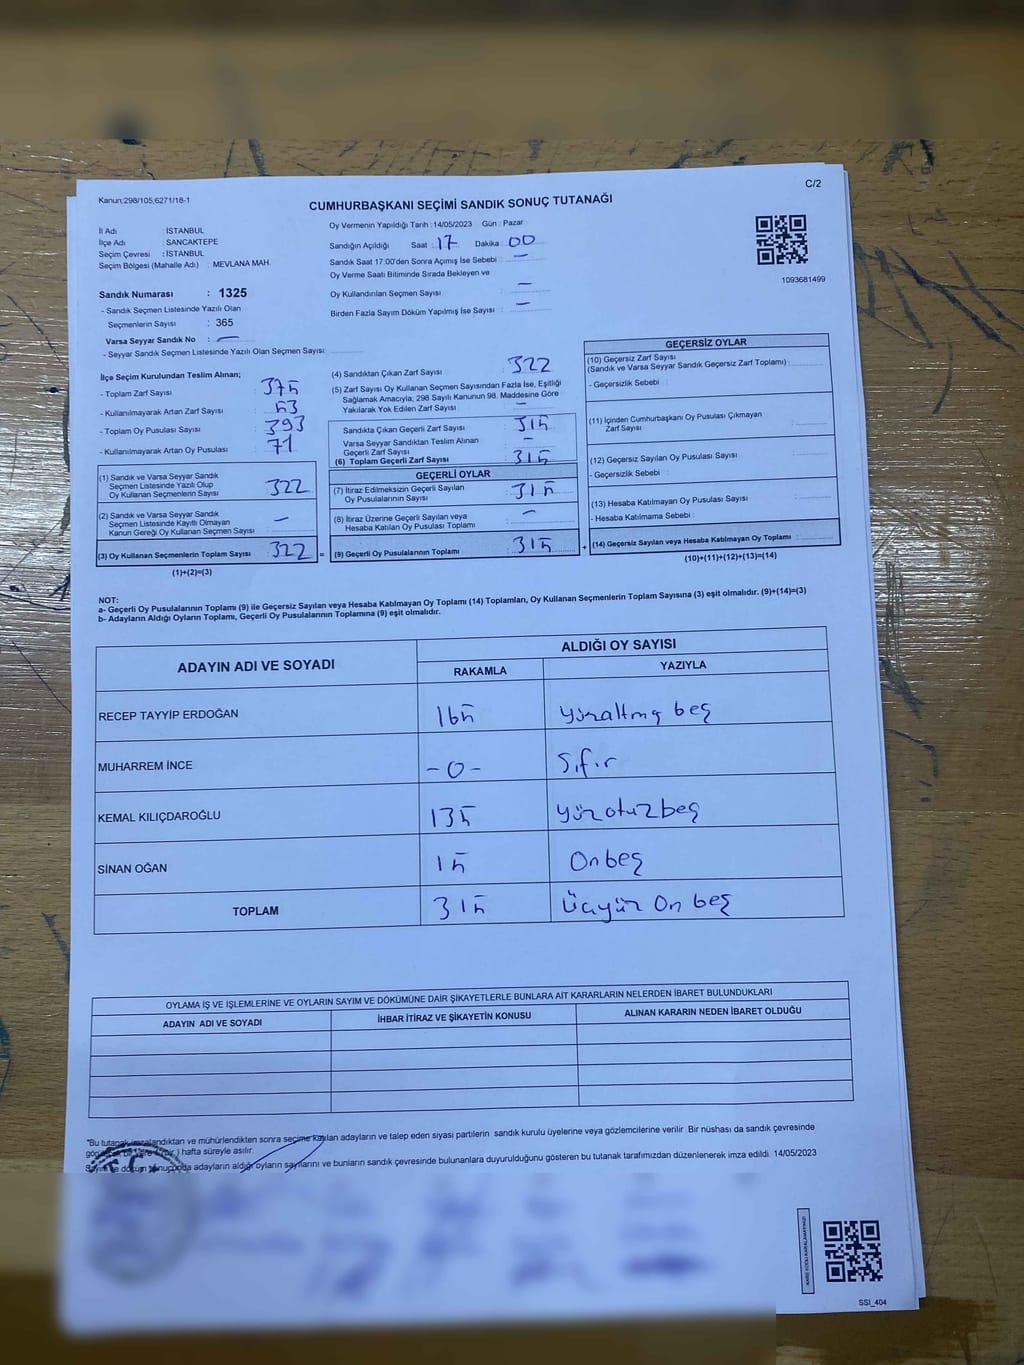 C/2
Kanun;298/105,6271/18-1
CUMHURBAŞKANI SEÇİMİ SANDIK SONUÇ TUTANAĞI
İl Adı : İSTANBUL
İlçe Adı : SANCAKTEPE
Seçim Çevresi : İSTANBUL
Seçim Bölgesi (Mahalle Adı) : MEVLANA MAH.
Sandık Numarası : 1325
- Sandık Seçmen Listesinde Yazılı Olan
Seçmenlerin Sayısı : 365
Varsa Seyyar Sandık No : -
- Seyyar Sandık Seçmen Listesinde Yazılı Olan Seçmen Sayısı:
Oy Vermenin Yapıldığı Tarih : 14/05/2023 Gün : Pazar
Sandığın Açıldığı Saat : 17 Dakika : 00
Sandık Saat 17.00'den Sonra Açımış İse Sebebi : -
Oy Verme Saati Bitiminde Sırada Bekleyen ve
Oy Kullandırılan Seçmen Sayısı : -
Birden Fazla Sayım Döküm Yapılmış İse Sayısı : -
1093681499
İlçe Seçim Kurulundan Teslim Alınan;
- Toplam Zarf Sayısı : 375
- Kullanılmayarak Artan Zarf Sayısı : 53
- Toplam Oy Pusulası Sayısı : 393
- Kullanılmayarak Artan Oy Pusulası : 71
(1) Sandık ve Varsa Seyyar Sandık
Seçmen Listesinde Yazılı Olup
Oy Kullanan Seçmenlerin Sayısı : 322
(2) Sandık ve Varsa Seyyar Sandık
Seçmen Listesinde Kayıtlı Olmayan
Kanun Gereği Oy Kullanan Seçmen Sayısı : -
(3) Oy Kullanan Seçmenlerin Toplam Sayısı : 322 =
(1)+(2)=(3)
(4) Sandıktan Çıkan Zarf Sayısı : 322
(5) Zarf Sayısı Oy Kullanan Seçmen Sayısından Fazla İse, Eşitliği
Sağlamak Amacıyla; 298 Sayılı Kanunun 98. Maddesine Göre
Yakılarak Yok Edilen Zarf Sayısı : -
Sandıkta Çıkan Geçerli Zarf Sayısı : 315
Varsa Seyyar Sandıktan Teslim Alınan
Geçerli Zarf Sayısı : -
(6) Toplam Geçerli Zarf Sayısı : 315
GEÇERLİ OYLAR
(7) İtiraz Edilmeksizin Geçerli Sayılan
Oy Pusulalarının Sayısı : 315
(8) İtiraz Üzerine Geçerli Sayılan veya
Hesaba Katılan Oy Pusulası Toplamı : -
(9) Geçerli Oy Pusulalarının Toplamı : 315 +
GEÇERSİZ OYLAR
(10) Geçersiz Zarf Sayısı
(Sandık ve Varsa Seyyar Sandık Geçersiz Zarf Toplamı) :
- Geçersizlik Sebebi :
(11) İçinden Cumhurbaşkanı Oy Pusulası Çıkmayan
Zarf Sayısı :
(12) Geçersiz Sayılan Oy Pusulası Sayısı :
- Geçersizlik Sebebi :
(13) Hesaba Katılmayan Oy Pusulası Sayısı :
- Hesaba Katılmama Sebebi :
(14) Geçersiz Sayılan veya Hesaba Katılmayan Oy Toplamı :
(10)+(11)+(12)+(13)=(14)
NOT:
a- Geçerli Oy Pusulalarının Toplamı (9) ile Geçersiz Sayılan veya Hesaba Katılmayan Oy Toplamı (14) Toplamları, Oy Kullanan Seçmenlerin Toplam Sayısına (3) eşit olmalıdır. (9)+(14)=(3)
b- Adayların Aldığı Oyların Toplamı, Geçerli Oy Pusulalarının Toplamına (9) eşit olmalıdır.
ADAYIN ADI VE SOYADI ALDIĞI OY SAYISI
RAKAMLA YAZIYLA
RECEP TAYYİP ERDOĞAN 165 Yüzaltmış beş
MUHARREM İNCE -0- Sıfır
KEMAL KILIÇDAROĞLU 135 Yüzotuzbeş
SİNAN OĞAN 15 Onbeş
TOPLAM 315 Üçyüz On beş
OYLAMA İŞ VE İŞLEMLERİNE VE OYLARIN SAYIM VE DÖKÜMÜNE DAİR ŞİKAYETLERLE BUNLARA AİT KARARLARIN NELERDEN İBARET BULUNDUKLARI
ADAYIN ADI VE SOYADI İHBAR İTİRAZ VE ŞİKAYETİN KONUSU ALINAN KARARIN NEDEN İBARET OLDUĞU
*Bu tutanak imzalandıktan ve mühürlendikten sonra seçime katılan adayların ve talep eden siyasi partilerin sandık kurulu üyelerine veya gözlemcilerine verilir Bir nüshası da sandık çevresinde
hafta süreyle asılır.
adayların aldığı oyların sayılarını ve bunların sandık çevresinde bulunanlara duyurulduğunu gösteren bu tutanak tarafımızdan düzenlenerek imza edildi. 14/05/2023
T.C.
SSI_404